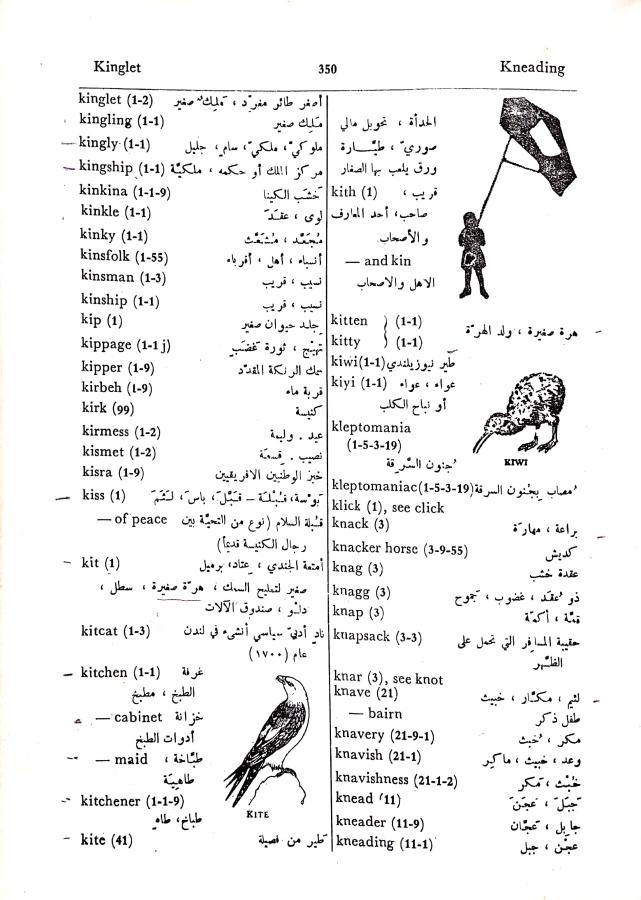 Kinglet 350 Kneading
kinglet (1-2) أصفر طائر مفرّد ، مَلِك صغير
kingling (1-1) مَلِك صغير
kingly (1-1) ملوكيّ، ملكيّ، سامٍ، جليل
kingship (1-1) مركز الملك أو حكمه ، ملكيّة
kinkina (1-1-9) خشَب الكينا
kinkle (1-1) لوى ، عقدَ
kinky (1-1) مُجَعَّد ، مُشَعَّث
kinsfolk (1-55) أنسباء ، أهل ، أقرباء
kinsman (1-3) نسيب ، قريب
kinship (1-1) نسيب ، قريب
kip (1) جلد حيوان صغير
kippage (1-1j) تهيّج ، ثورة غضَب
kipper (1-9) سمك الرنكة المقدّد
kirbeh (1-9) قربة ماء
kirk (99) كنيسة
kirmess (1-2) عيد . وليمة
kismet (1-2) نصيب . قِسمَة
kisra (1-9) خبز الوطنيين الافريقيين
kiss (1) بَوسة، قُبْلَة – قبَّلَ، باسَ، لَثَمَ
— of peace قُبلة السلام (نوع من التحيَّة بين
رجال الكنيسة قديماً)
kit (1) أمتعة الجندي ، عتاد، برميل
صغير لتمليح السمك ، هرّة صغيرة ، سطل ،
دلو ، صندوق الآلات
kitcat (1-3) نادٍ أدبيّ سياسي أنشىء في لندن
عام (١٧٠٠)
kitchen (1-1) غرفة
الطبخ ، مطبخ
— cabinet خزانة
أدوات الطبخ
— maid طبَّاخة ،
طاهِيَة
kitchener (1-1-9)
طباخ، طاهٍ
kite (41) طير من فصيلة
KITE
الحدأة ، تحويل مالي
صوريّ ، طيَّارة
ورق يلعب بها الصغار
kith (1) قريب ،
صاحب، أحد المعارف
والأصحاب
— and kin
الاهل والاصحاب
kitten } (1-1) هرة صغيرة ، ولد الهرّة
kitty } (1-1)
kiwi(1-1) طير نيوزيلندي
kiyi (1-1) عواء ، عواء
أو نباح الكلب
KIWI
kleptomania
(1-5-3-19)
جُنون السَّرقة
kleptomaniac(1-5-3-19) مُصاب بجُنون السرقة
klick (1), see click
knack (3) براعة ، مهارة
knacker horse (3-9-55) كديش
knag (3) عقدة خشب
knagg (3) ذو عُقد ، غضوب ، جموح
knap (3) قمّة ، أكمَة
knapsack (3-3) حقيبة المسافر التي تحمل على
الظهر
knar (3), see knot
knave (21) لئيم ، مكّار ، خبيث
— bairn طفل ذكر
knavery (21-9-1) مكر ، خُبث
knavish (21-1) وغد ، خبيث ، ماكر
knavishness (21-1-2) خُبْث ، مَكر
knead (11) جَبَلَ ، عجَنَ
kneader (11-9) جابل ، عَجَّان
kneading (11-1) عجْن ، جبل